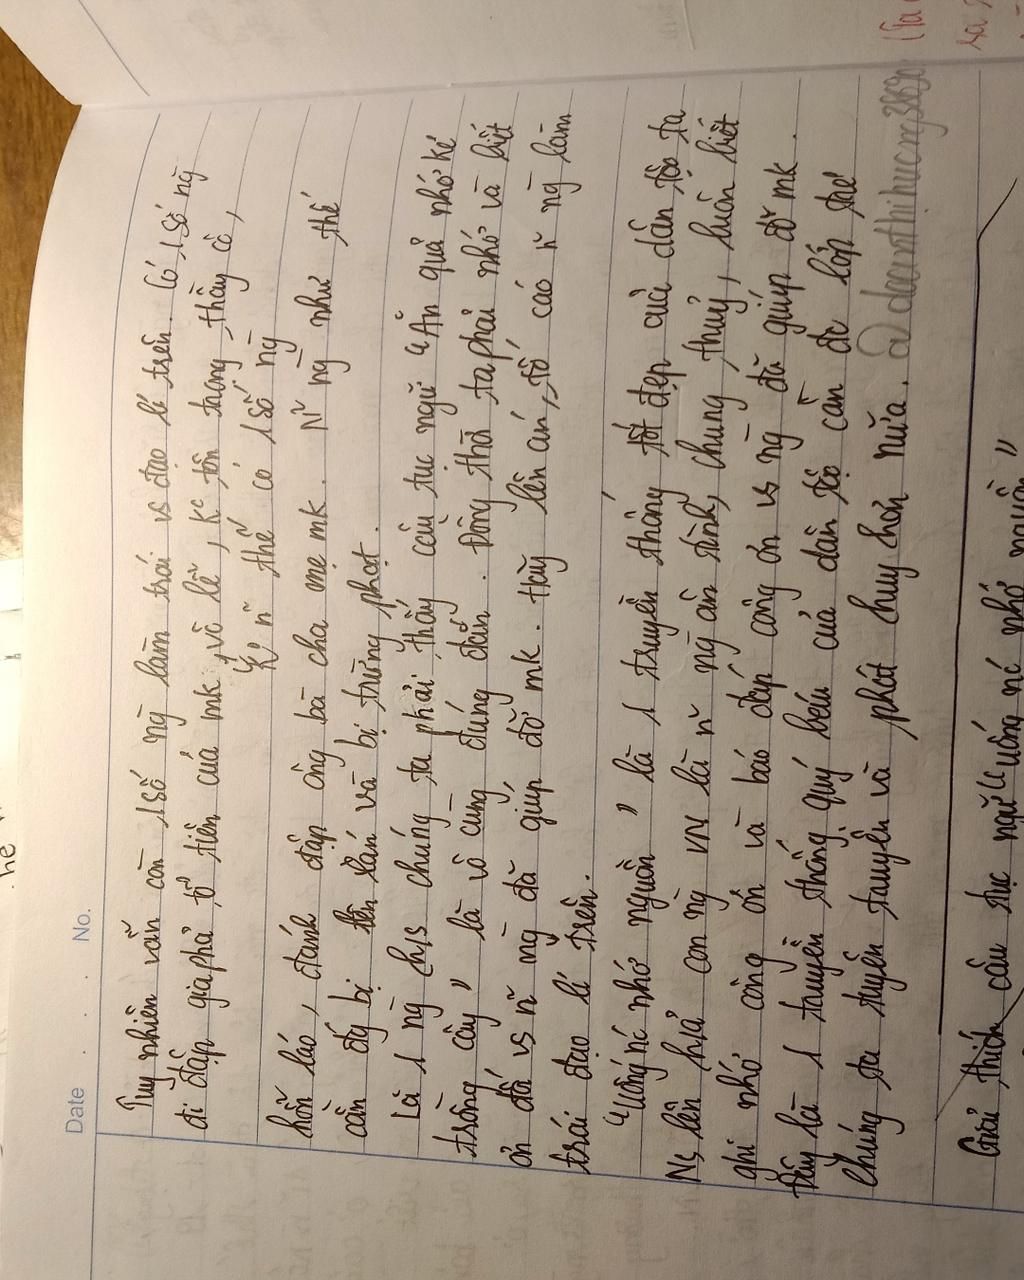 Date No.
Tuy nhiên vẫn còn 1 số ng làm trái vs đạo lí trên. Có 1 số ng
đi đập gia phả tổ tiên của mk, vô lễ, ko tôn trọng, thầy cô,
n thế có 1 số ng
hỗn láo, đánh đập ông bà cha mẹ mk. N~ ng như thế
cần đc bị lên án và bị trừng phạt.
Là 1 ng hs chúng ta phải thấy câu tục ngữ "Ăn quả nhớ kẻ
trồng cây" là vô cùng đúng đắn. Đồng thời ta phải nhớ và biết
ơn đối vs n~ ng đã giúp đỡ mk. Hãy lên án, tố cáo n~ ng làm
trái đạo lí trên.
"Uống nc nhớ nguồn" là 1 truyền thống tốt đẹp của dân tộc ta
lên phả con ng VN là n~ ng ân tình, chung thuỷ, luôn biết
ghi nhớ công ơn và báo đáp công ơn vs ng đã giúp đỡ mk.
Đây là 1 truyền thống quý báu của dân tộc cần đc lớp thế
chúng ta tuyên truyền và phát huy hơn nữa.
Giải thích câu tục ngữ "uống nc nhớ nguồn"